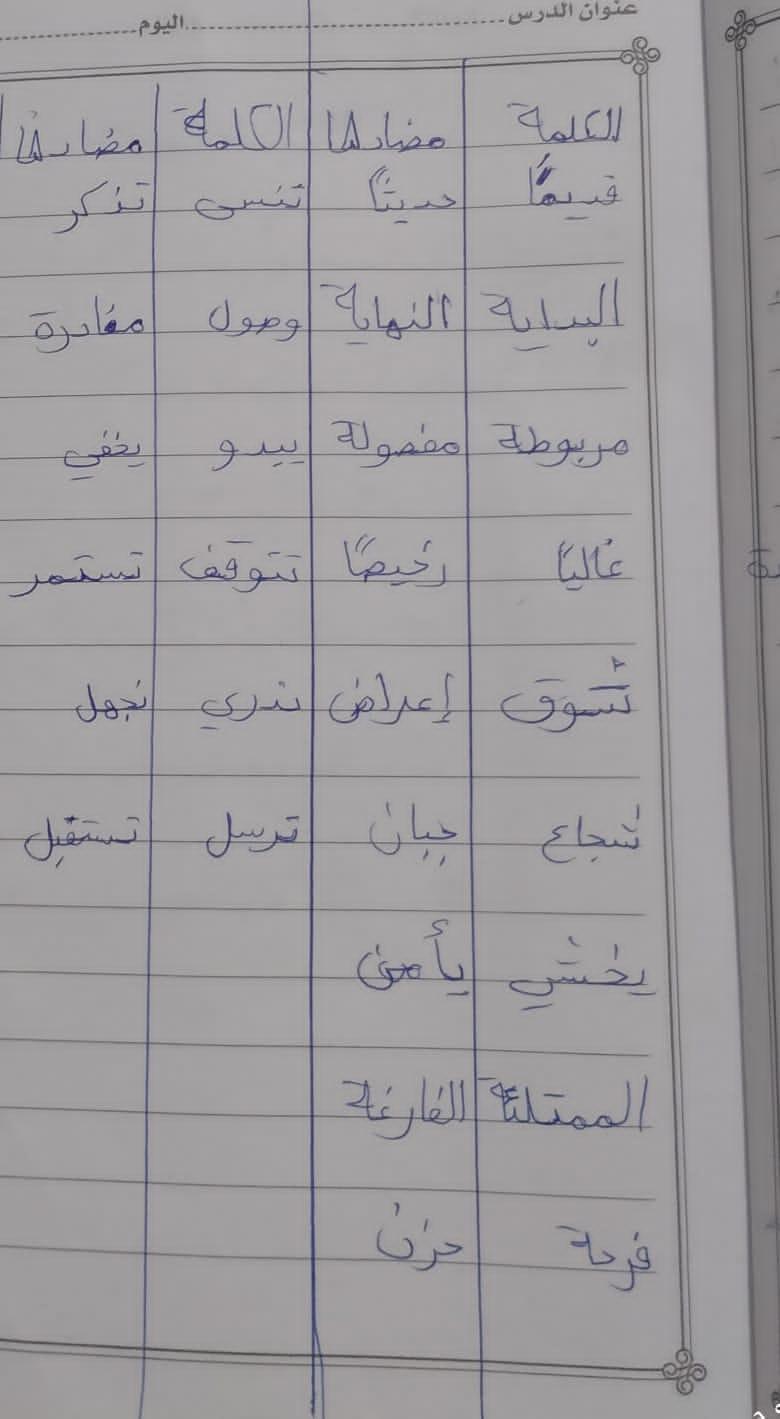 عنوان الدرس ........ اليوم ........
الكلمة مضادها الكلمة مضادها
قديمًا حديثًا تنسى تذكر
البداية النهاية وصول مغادرة
مربوطة مفصولة يبدو يخفي
غاليًا رخيصًا تتوقف تستمر
تشوق إعراض ندري نجهل
شجاع جبان ترسل تستقبل
يخشي يأمن
الممتلئة الفارغة
فرحة حزن